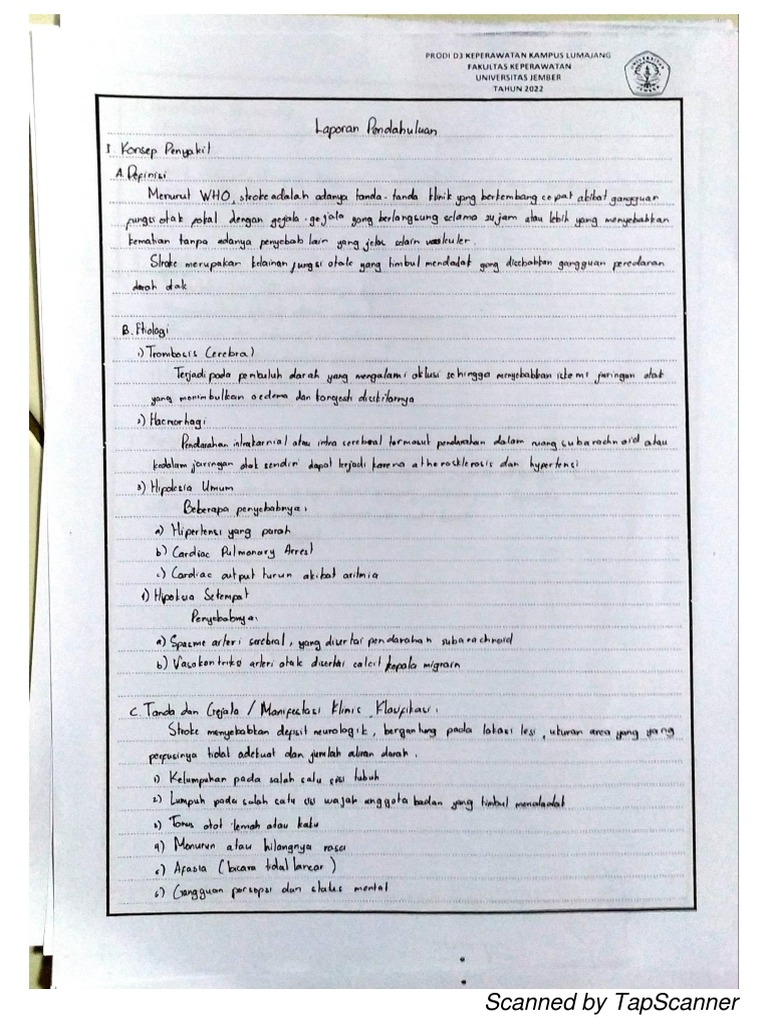 PRODI D3 KEPERAWATAN KAMPUS LUMAJANG
FAKULTAS KEPERAWATAN
UNIVERSITAS JEMBER
TAHUN 2022
UNIVERSITAS JEMBER
Laporan Pendahuluan
I. Konsep Penyakit
A. Definisi
Menurut WHO, stroke adalah adanya tanda-tanda klinik yang berkembang cepat akibat gangguan
fungsi otak fokal dengan gejala-gejala yang berlangsung selama 24 jam atau lebih yang menyebabkan
kematian tanpa adanya penyebab lain yang jelas selain vaskuler.
Stroke merupakan kelainan fungsi otak yang timbul mendadak yang disebabkan gangguan peredaran
darah otak
B. Etiologi
1) Trombosis Cerebral
Terjadi pada pembuluh darah yang mengalami oklusi sehingga menyebabkan iskemi jaringan otak
yang menimbulkan oedema dan kongesti disekitarnya
2) Haemorhagi
Pendarahan intrakarnial atau intra serebral termasuk pendarahan dalam ruang subarachnoid atau
kedalam jaringan otak sendiri dapat terjadi karena atherosklerosis dan hypertensi
3) Hipoksia Umum
Beberapa penyebabnya:
a) Hipertensi yang parah
b) Cardiac Pulmonary Arrest
c) Cardiac output turun akibat aritmia
4) Hipoksia Setempat
Penyebabnya:
a) Spasme arteri serebral, yang disertai pendarahan subarachnoid
b) Vasokontriksi arteri otak disertai sakit kepala migrain
C. Tanda dan Gejala / Manifestasi Klinis, Klasifikasi:
Stroke menyebabkan defisit neurologik, bergantung pada lokasi lesi, ukuran area yang yang
perfusinya tidak adekuat dan jumlah aliran darah.
1) Kelumpuhan pada salah satu sisi tubuh
2) Lumpuh pada salah satu sisi wajah anggota badan yang timbul mendadak
3) Tonus otot lemah atau kaku
4) Menurun atau hilangnya rasa
5) Afasia (bicara tidak lancar)
6) Gangguan persepsi dan status mental
Scanned by TapScanner